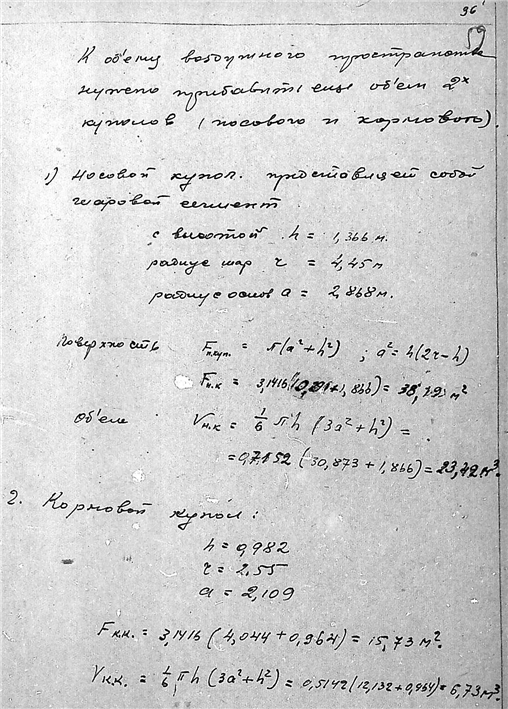 96
59
К об'ему воздушного пространства
нужно прибавить еще об'ем 2х
куполов (носового и кормового).
1) Носовой купол. представляет собой
шаровой сегмент
с высотой h = 1,366 м.
радиус шар r = 4,45 м
радиус основ a = 2,868 м.
Поверхность Fн.куп. = π(a²+h²) ; a² = h(2r-h)
Fн.к = 3,1416 ( +1,866) = 38,19 м²
Об'ем Vн.к = 1/6 πh (3a²+h²) =
= 0,7152 (30,873 + 1,866) = 23,42 м³.
2. Кормовой купол:
h = 0,982
r = 2,55
a = 2,109
Fк.к. = 3,1416 (4,044 + 0,964) = 15,73 м².
Vк.к. = 1/6 πh (3a²+h²) = 0,5142 (12,132+0,964) = 6,73 м³.